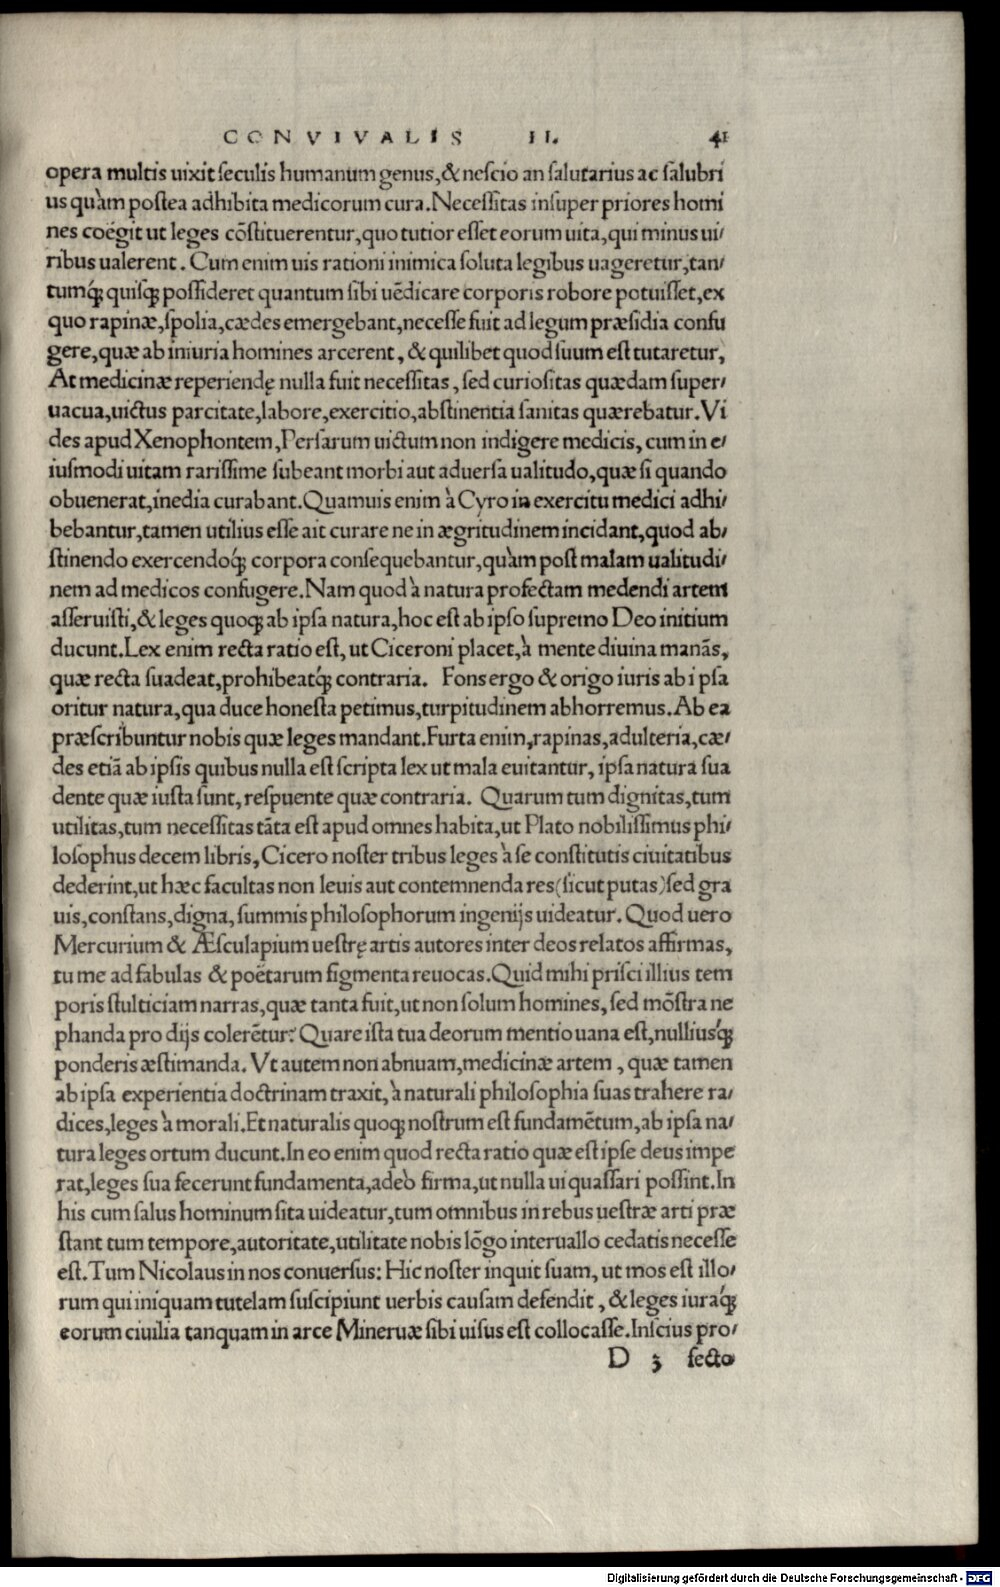 CONVIVALIS II. 41
opera multis uixit seculis humanum genus,& nescio an salutarius ac salubri
us quàm postea adhibita medicorum cura.Necessitas insuper priores homi
nes coëgit ut leges cōstituerentur,quo tutior esset eorum uita,qui minus ui/
ribus ualerent. Cum enim uis rationi inimica soluta legibus uageretur,tan/
tumq́; quisq; possideret quantum sibi uēdicare corporis robore potuisset,ex
quo rapinæ,spolia,cædes emergebant,necesse fuit ad legum præsidia confu
gere,quæ ab iniuria homines arcerent, & quilibet quod suum est tutaretur,
At medicinæ reperiendę nulla fuit necessitas, sed curiositas quædam super/
uacua,uictus parcitate,labore,exercitio,abstinentia sanitas quærebatur. Vi
des apud Xenophontem,Persarum uictum non indigere medicis, cum in e/
iusmodi uitam rarissime subeant morbi aut aduersa ualitudo,quæ si quando
obuenerat,inedia curabant.Quamuis enim à Cyro in exercitu medici adhi/
bebantur,tamen utilius esse ait curare ne in ægritudinem incidant,quod ab/
stinendo exercendoq́; corpora consequebantur,quàm post malam ualitudi/
nem ad medicos confugere.Nam quod à natura profectam medendi artem
asseruisti,& leges quoq; ab ipsa natura,hoc est ab ipso supremo Deo initium
ducunt.Lex enim recta ratio est, ut Ciceroni placet,à mente diuina manās,
quæ recta suadeat,prohibeatq́; contraria. Fons ergo & origo iuris ab i psa
oritur natura,qua duce honesta petimus,turpitudinem abhorremus. Ab ea
præscribuntur nobis quæ leges mandant.Furta enim,rapinas,adulteria,cæ/
des etiā ab ipsis quibus nulla est scripta lex ut mala euitantur, ipsa natura sua
dente quæ iusta sunt,respuente quæ contraria. Quarum tum dignitas,tum
utilitas,tum necessitas tāta est apud omnes habita,ut Plato nobilissimus phi/
losophus decem libris, Cicero noster tribus leges à se constitutis ciuitatibus
dederint,ut hæc facultas non leuis aut contemnenda res(sicut putas)sed gra
uis,constans,digna,summis philosophorum ingenijs uideatur. Quod uero
Mercurium & Æsculapium uestrę artis autores inter deos relatos affirmas,
tu me ad fabulas & poëtarum figmenta reuocas.Quid mihi prisci illius tem
poris stulticiam narras,quæ tanta fuit,ut non solum homines, sed mōstra ne
phanda pro dijs colerētur? Quare ista tua deorum mentio uana est,nulliusq́;
ponderis æstimanda. Vt autem non abnuam,medicinæ artem, quæ tamen
ab ipsa experientia doctrinam traxit,à naturali philosophia suas trahere ra/
dices,leges à morali.Et naturalis quoq; nostrum est fundamētum,ab ipsa na/
tura leges ortum ducunt.In eo enim quod recta ratio quæ est ipse deus impe
rat,leges sua fecerunt fundamenta,adeò firma,ut nulla ui quassari possint.In
his cum salus hominum sita uideatur,tum omnibus in rebus uestræ arti præ
stant tum tempore,autoritate,utilitate nobis lōgo interuallo cedatis necesse
est.Tum Nicolaus in nos conuersus: Hic noster inquit suam, ut mos est illo/
rum qui iniquam tutelam suscipiunt uerbis causam defendit, & leges iuraq́;
eorum ciuilia tanquam in arce Mineruæ sibi uisus est collocasse.Inscius pro/
D 3 fecto
Digitalisierung gefördert durch die Deutsche Forschungsgemeinschaft - DFG